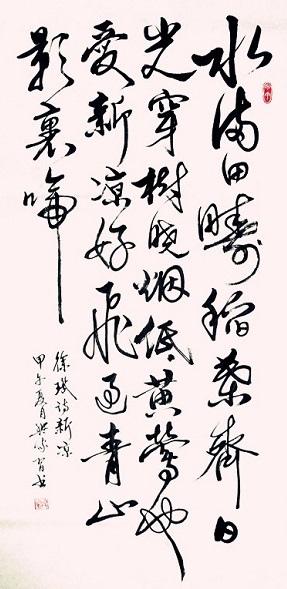 水滿田疇稻葉齊日
光穿樹曉烟低黄鶯也
愛新凉好飛過青山
影裏啼
徐璣诗新凉
甲午夏月